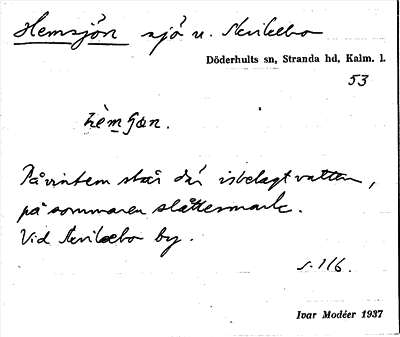 Hemsjön sjö u. Skikebo
Döderhults sn, Stranda hd, Kalm. l.
53
På vintern står där isbelagt vatten,
på sommaren slåttermark.
Vid Skikebo by.
s. 116.
Ivar Modéer 1937